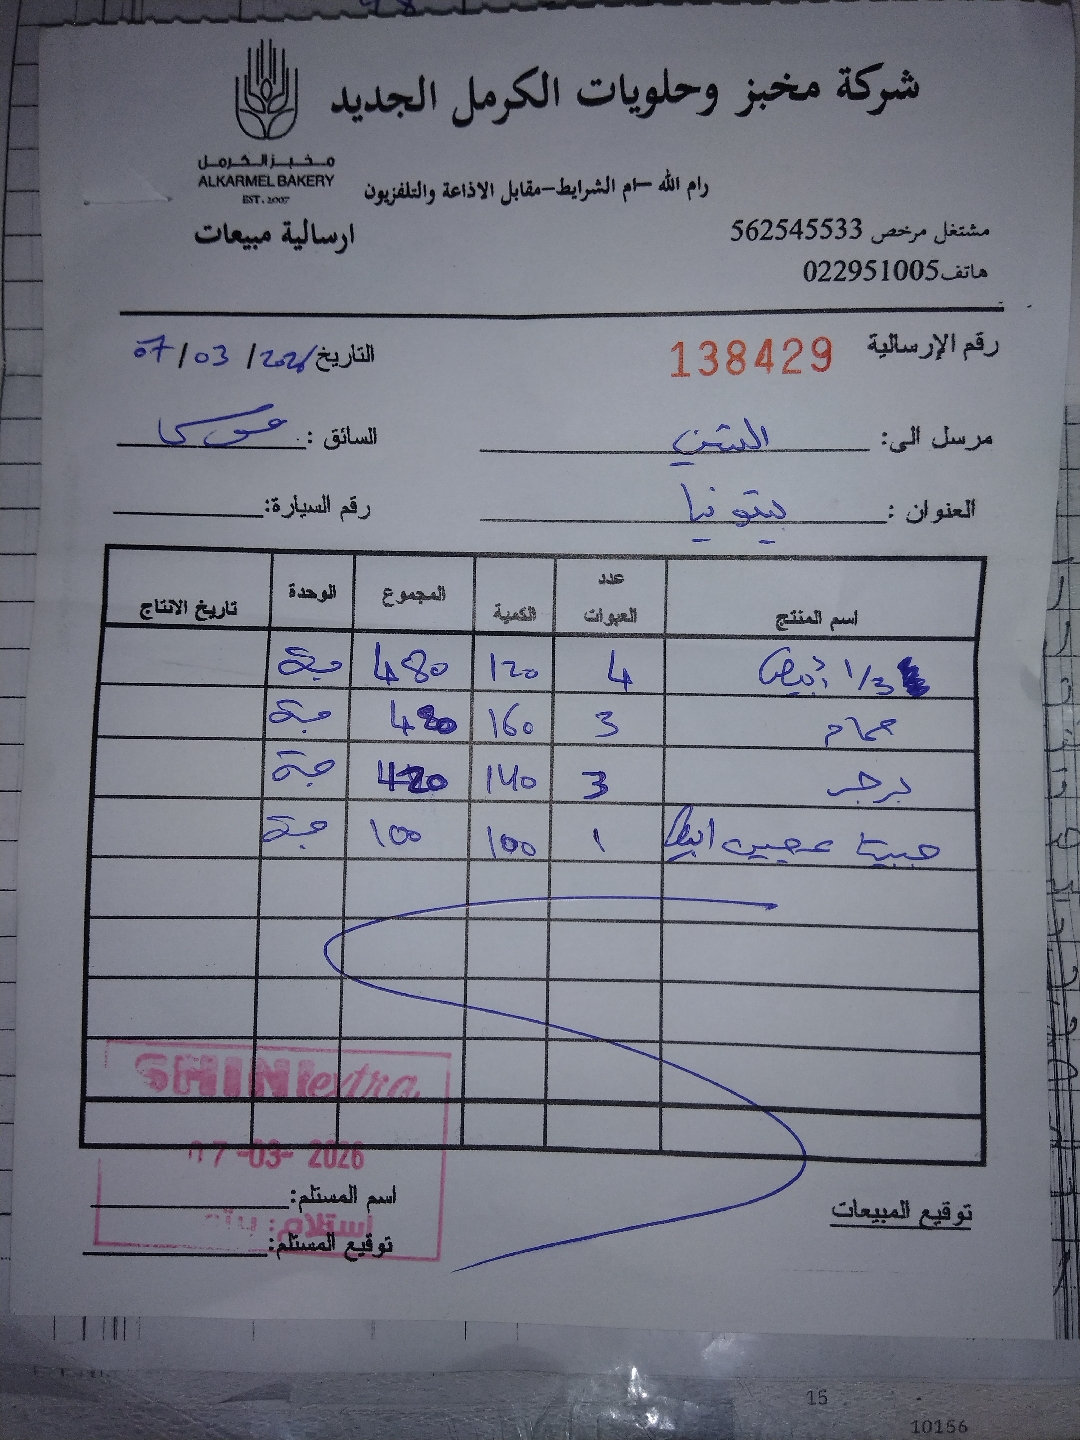 شركة مخبز وحلويات الكرمل الجديد
مخبز الكرمل
ALKARMEL BAKERY
EST. 2007
رام الله –ام الشرايط–مقابل الاذاعة والتلفزيون
مشتغل مرخص 562545533
ارسالية مبيعات
هاتف022951005
رقم الإرسالية 138429
التاريخ 07/03/2026
مرسل الى:
السائق : موسى
العنوان : بيتونيا
رقم السيارة:
اسم المنتج عدد العبوات الكمية المجموع الوحدة تاريخ الانتاج
1/3 4 120 480
حمام 3 160 480
برجر 3 140 420
عجين 1 100 100
SHINI extra
07-03-2026
اسم المستلم:
استلام:
توقيع المستلم:
توقيع المبيعات
15
10156